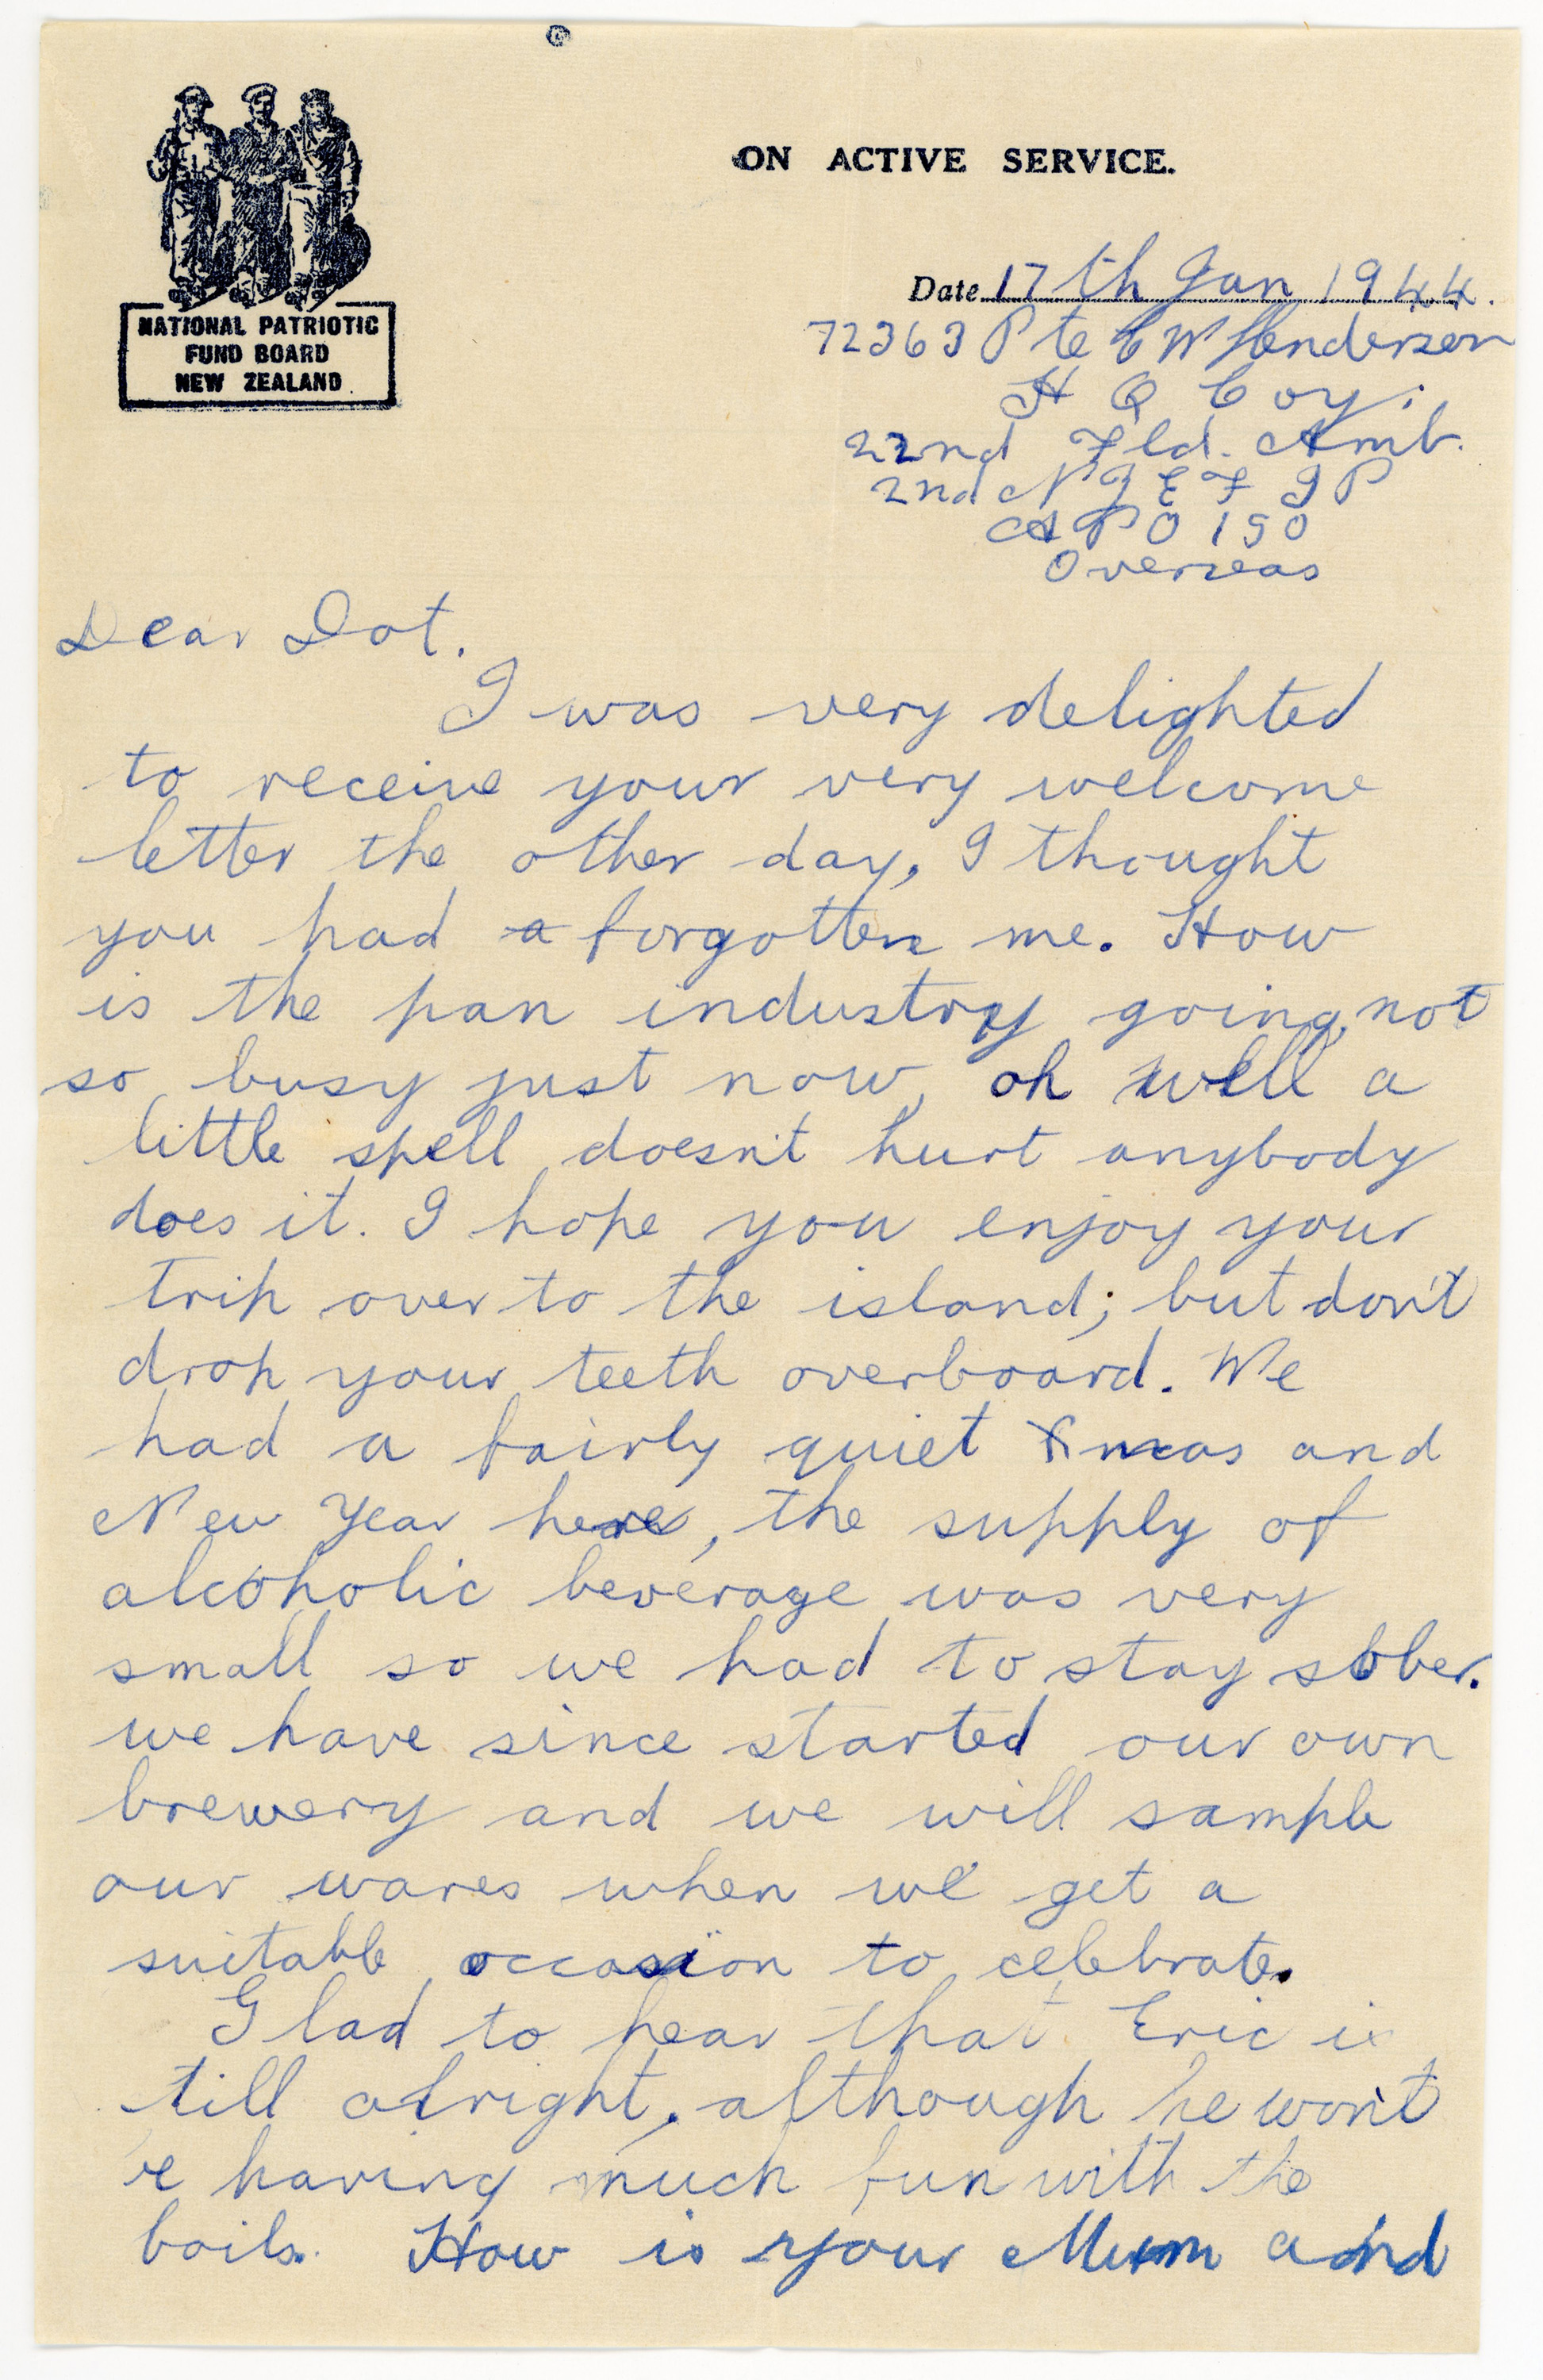 ON ACTIVE SERVICE.
NATIONAL PATRIOTIC
FUND BOARD
NEW ZEALAND
Date 17th Jan 1944.
72363 Pte C W Henderson
H Q Coy.
22nd Fld. Amb.
2nd N Z E F I P
A P O 150
Overseas
Dear Dot.
I was very delighted
to receive your very welcome
letter the other day, I thought
you had a forgotten me. How
is the pan industry going, not
so busy just now, oh well a
little spell doesn't hurt anybody
does it. I hope you enjoy your
trip over to the island; but don't
drop your teeth overboard. We
had a fairly quiet Xmas and
New Year here, the supply of
alcoholic beverage was very
small so we had to stay sober.
we have since started our own
brewery and we will sample
our wares when we get a
suitable occasion to celebrate.
Glad to hear that Eric is
till alright, although he won't
e having much fun with the
boils. How is your Mum and